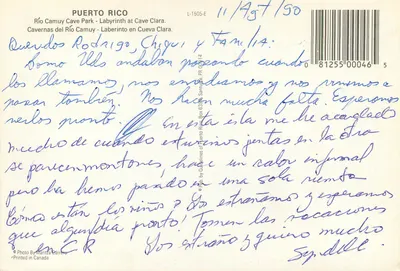 PUERTO RICO
Río Camuy Cave Park - Labyrinth at Cave Clara.
Cavernas del Río Camuy - Laberinto en Cueva Clara.
L-1505-E
11/Agt/90
Queridos Rodrigo, Chiqui y Familia:
Como Uds andaban paseando cuando
los llamamos, nos enojamos y nos vinimos a
pasear también. Nos hacen mucha falta. Esperamos
verlos pronto.
0 81255 00046 5
En esta isla me he acordado
mucho de cuando estuvimos juntas en la otra
se parecen montones, hace un calor infernal
pero la hemos pasado en una sola
Cómo están los niños? Los extrañamos y esperamos
que algún día pronto! Tomen las vacaciones
en CR Los extraño y quiero mucho
Photo By
Printed in Canada